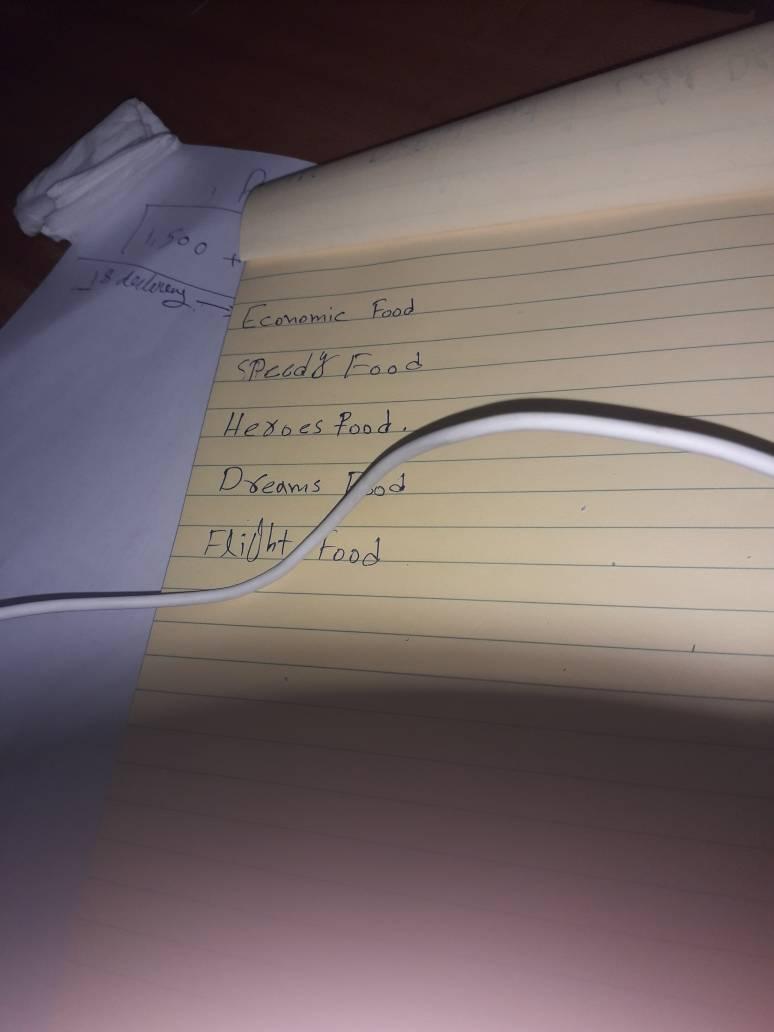 1,500 +
Economic Food
Speedy Food
Heroes Food.
Dreams Food
Flight Food